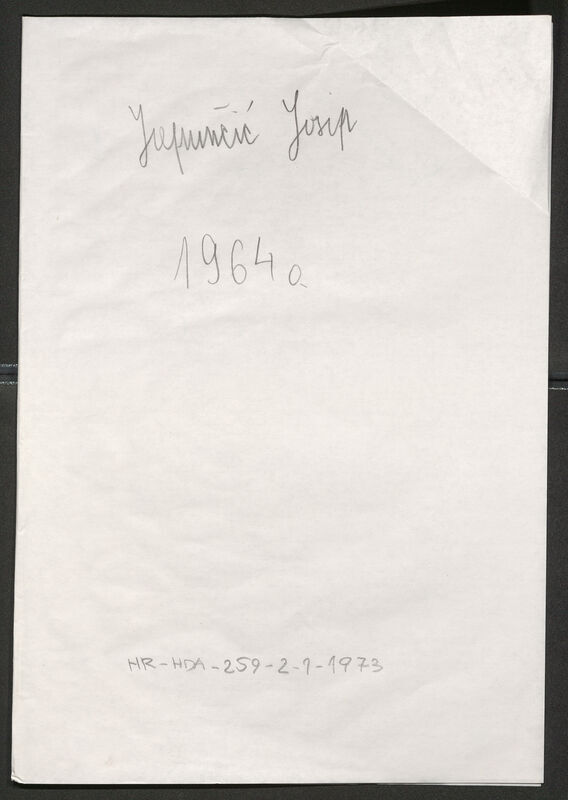 Japunčić Josip
1964 o.
HR-HDA-259-2-1-1973